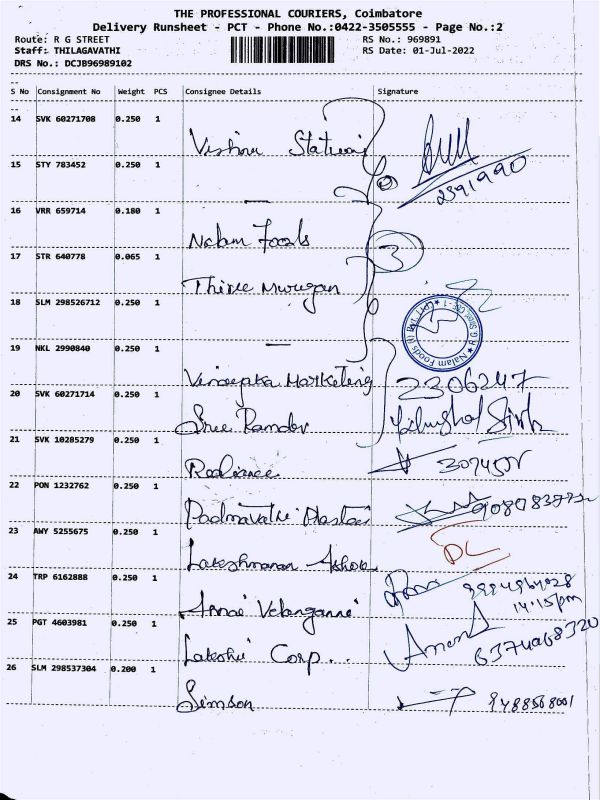 THE PROFESSIONAL COURIERS, Coimbatore
Delivery Runsheet - PCT - Phone No.:0422-3505555 - Page No.:2
Route: R G STREET RS No.: 969891
Staff: THILAGAVATHI RS Date: 01-Jul-2022
DRS No.: DCJB96989102
S No Consignment No Weight PCS Consignee Details Signature
14 SVK 60271708 0.250 1
Vishnu
15 STY 783452 0.250 1
2391990
16 VRR 659714 0.180 1
Nalam Foods
3
17 STR 640778 0.065 1
Thiree Murugan
18 SLM 298526712 0.250 1
Nalam Foods (I) Pvt
19 NKL 2990840 0.250 1
Vinayaka Marketing 2306247
20 SVK 60271714 0.250 1
Sree Ramdev
21 SVK 10285279 0.250 1
Realiance
22 PON 1232762 0.250 1
Padmavathi
23 AWY 5255675 0.250 1
Lakeshmanan Ashok DL
24 TRP 6162888 0.250 1
14:15pm
Annai Velanganni
25 PGT 4603981 0.250 1
Anand
Lakshi Corp..
26 SLM 298537304 0.200 1
Simson 9488568001